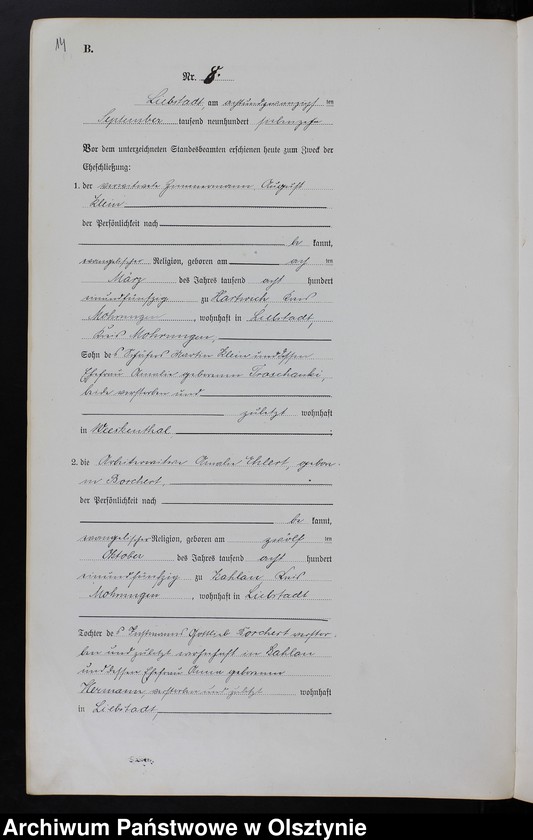 14
B.
Nr. 8.
Liebstadt, am achtundzwanzigsten
September tausend neunhundert
Vor dem unterzeichneten Standesbeamten erschienen heute zum Zweck der
Eheschließung:
1. der verwitwete Zimmermann August
Klein
der Persönlichkeit nach
be kannt,
evangelischer Religion, geboren am ach ten
März des Jahres tausend acht hundert
neunundfünfzig zu Hartwich, Kreis
Mohrungen, wohnhaft in Liebstadt,
Kreis Mohrungen,
Sohn des Schäfers Martin Klein und dessen
Ehefrau Amalie geborenen
beide verstorben und
zuletzt wohnhaft
in Wieskenthal
2. die Arbeiterwitwe Amalie Ehlert, gebore-
ne Borchert,
der Persönlichkeit nach
be kannt,
evangelischer Religion, geboren am zwölf ten
Oktober des Jahres tausend acht hundert
einundfünfzig zu Kahlau, Kreis
Mohrungen, wohnhaft in Liebstadt
Tochter des Instmanns Gottlieb Borchert verstor-
ben und zuletzt wohnhaft in Kahlau
und dessen Ehefrau Anna geborenen
Hermann, verstorben und zuletzt wohnhaft
in Liebstadt,
Archiwum Państwowe w Olsztynie